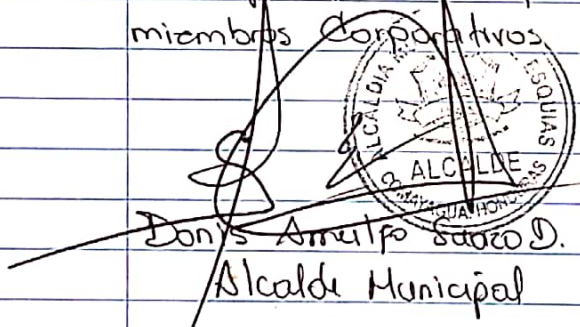 miembros Corporativos
ALCALDIA ESQUIAS
ALCALDE
COMAYAGUA, HONDURAS
Donis Arnulfo D.
Alcalde Municipal